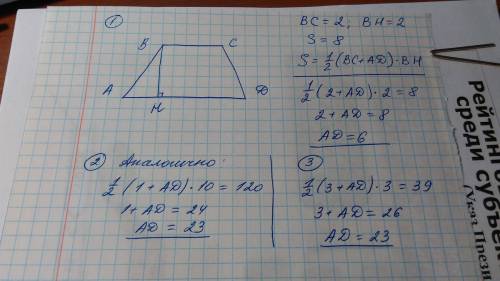 ①
B C
A H D
BC = 2, BH = 2
S = 8
S = 1/2 (BC + AD) · BH
1/2 (2 + AD) · 2 = 8
2 + AD = 8
AD = 6
② Аналогично:
1/2 (1 + AD) · 10 = 120
1 + AD = 24
AD = 23
③
1/2 (3 + AD) · 3 = 39
3 + AD = 26
AD = 23
Рейтинг
среди субъек
(Указ Прези